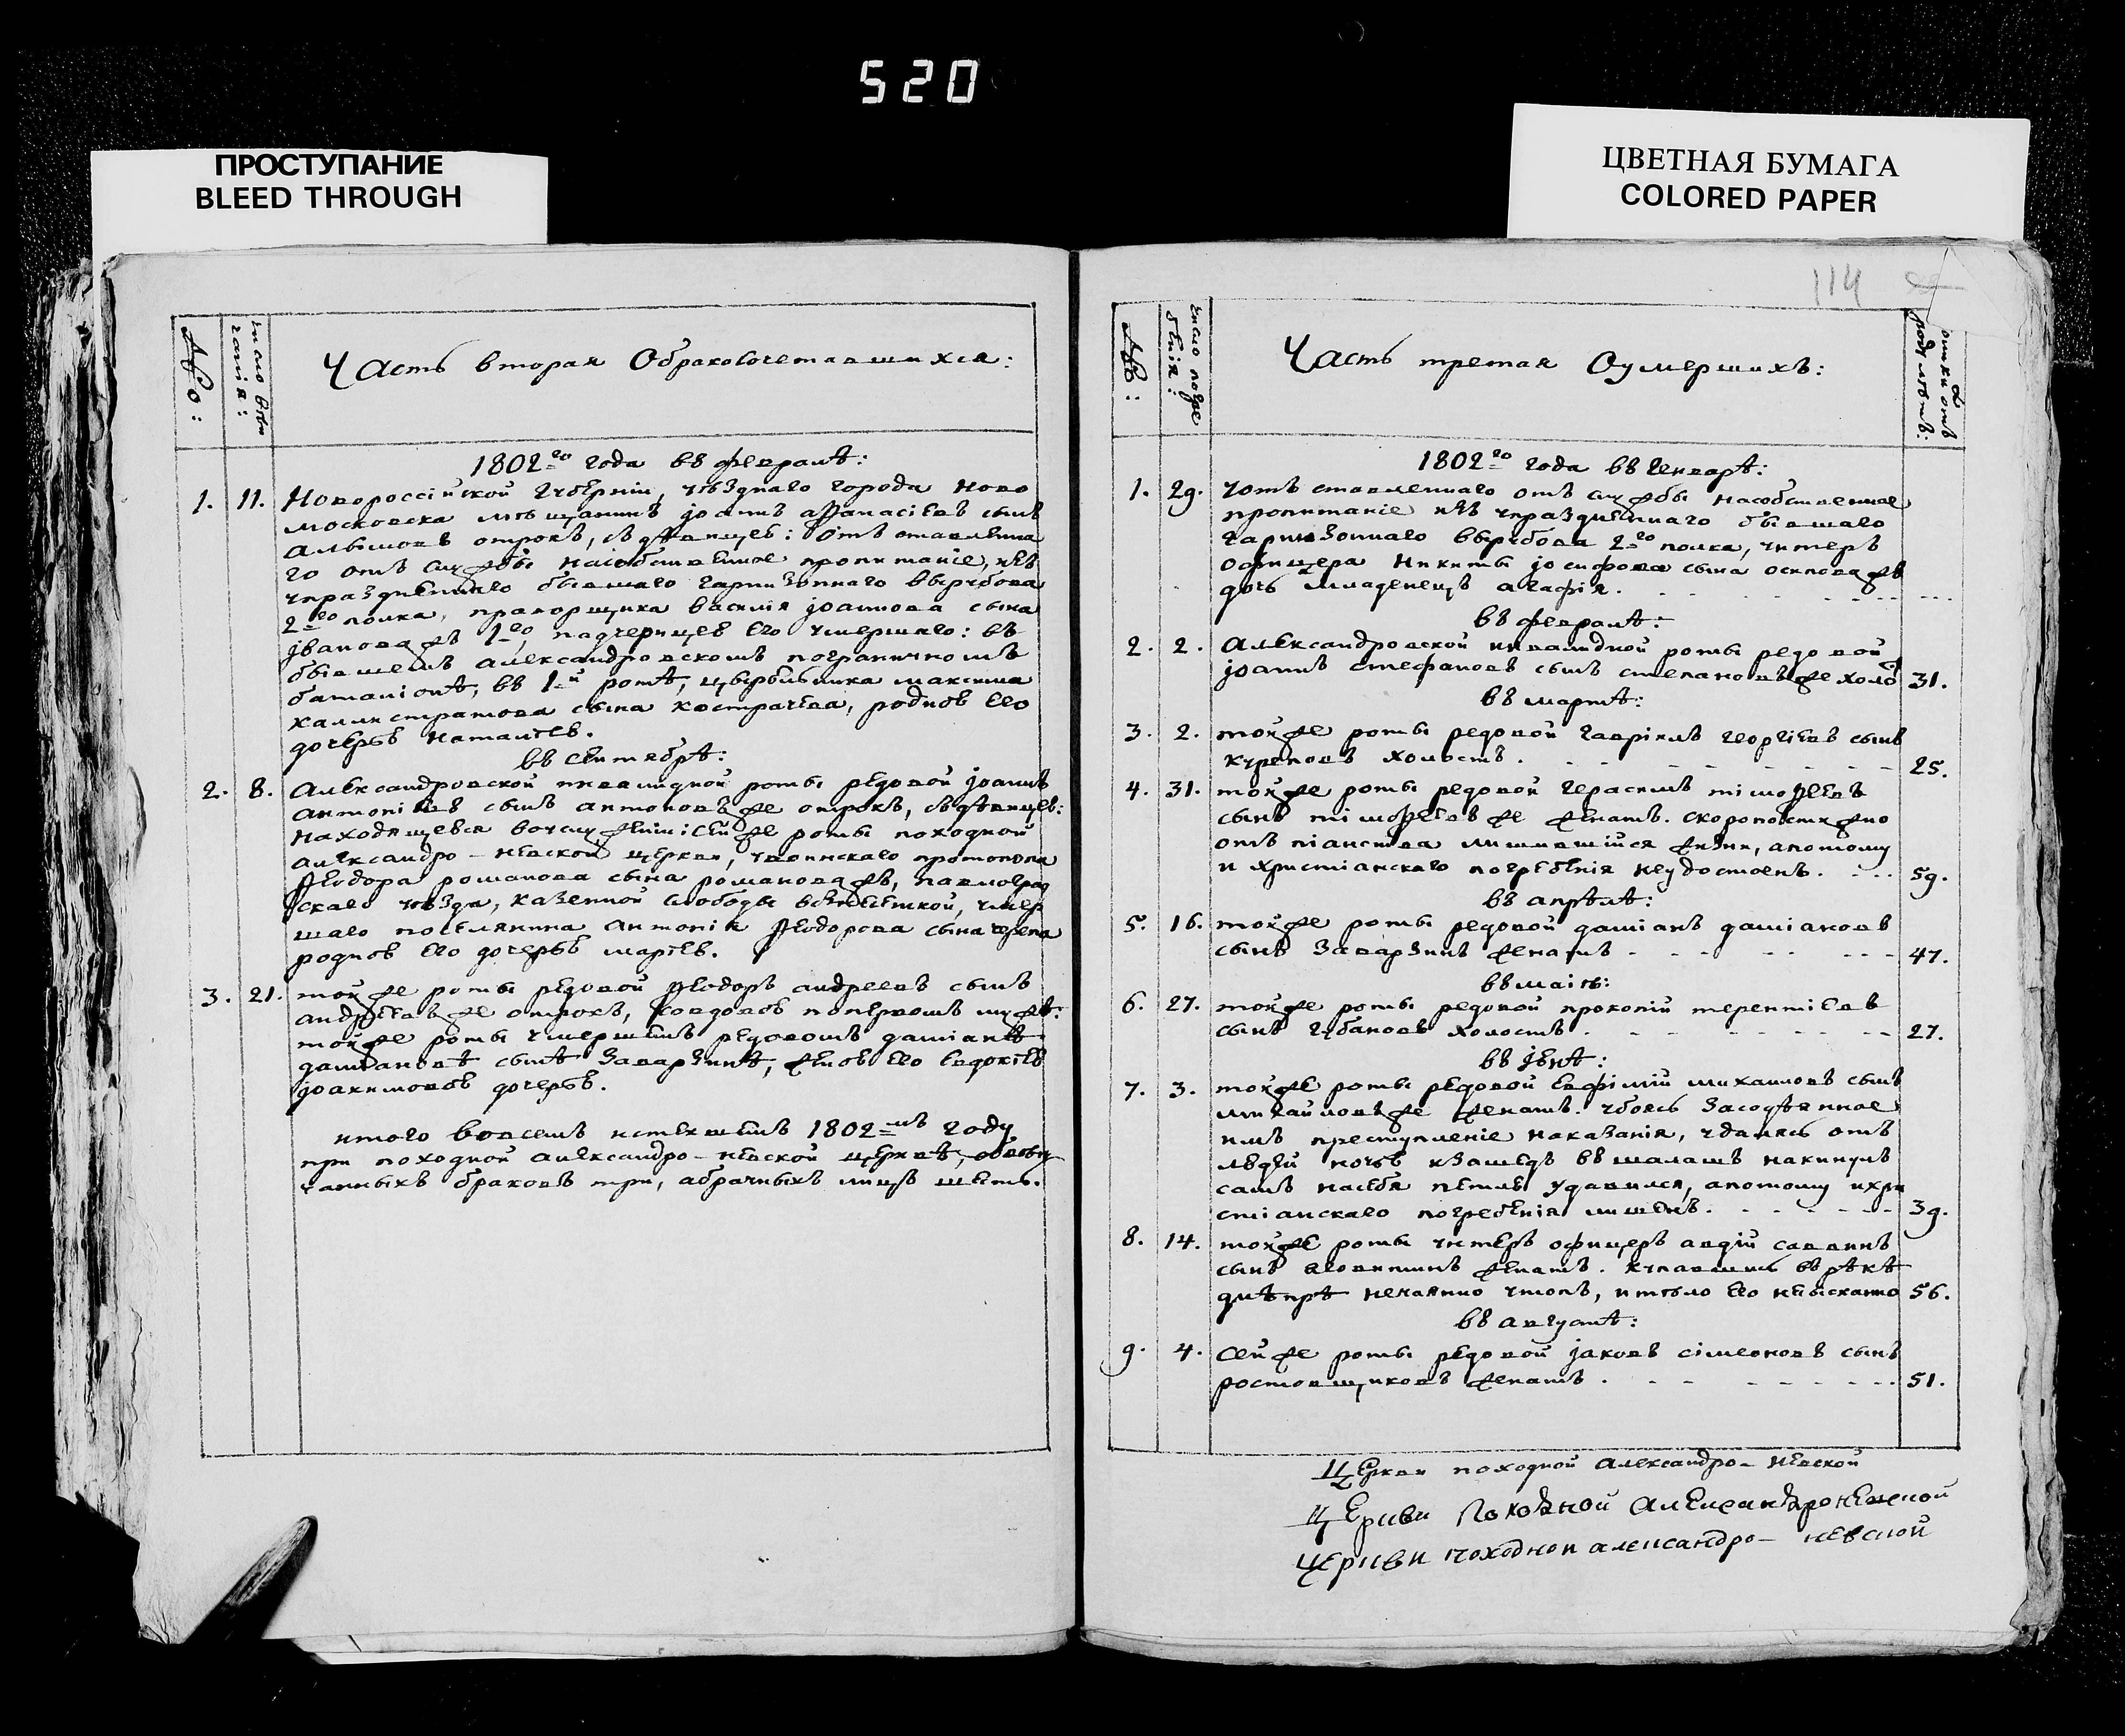 520
ПРОСТУПАНИЕ
BLEED THROUGH
ЦВЕТНАЯ БУМАГА
COLORED PAPER
114
№о:
число вѣн
чанія:
Часть вторая Обраковочетавшихся:
1802=го года въ февралѣ:
1. 11. Новороссійской Губерніи, уѣзднаго города ново
московска мѣщанинъ іоаннъ аѳанасіевъ сынъ
алымовъ отрокъ, съдѣвицею: отъ ставленна
го отъ службы насобственное пропитаніе, изъ
упраздненнаго бывшаго гарнизоннаго
2=го полка, прапорщика василія іоаннова сына
іванова жъ 1=го, падчерицею его умершаго: въ
бывшемъ александровскомъ пограничномъ
баталіонѣ, въ 1=й ротѣ, максима
калистратова сына кострачева, родною его
дочерью наталіею.
въ сентябрѣ:
2. 8. Александровской инвалидной роты редовой іоаннъ
антоніевъ сынъ антоновъ же отрокъ, съдѣвицею:
находящейся вочислѣніи сей же роты походной
александро-невской церкви, протопопа
ѳеодора романова сына романова жъ, павлоград
скаго уѣзда, казенной слободы умер
шаго поселянина антонія ѳеодорова сына черепа
родною его дочерью маріею.
3. 21. той же роты редовой ѳеодоръ андреевъ сынъ
андреевъ же отрокъ, совдовою поперкомъ мужѣ:
той же роты умершемъ редовомъ даміанѣ
даміановѣ сынѣ заварзинѣ, женою его евдокіею
іоакимовою дочерью.
итого вовсемъ истекшемъ 1802=мъ году
при походной александро-невской церквѣ, обвѣн
чанныхъ браковъ три, абрачныхъ лицъ шесть.
№о:
число погре
бѣнія:
Часть третая Оумершихъ:
отъ
роду лѣтъ:
1802=го года въ генварѣ:
1. 29. уотъ ставленнаго отъ службы насобственное
пропитаніе изъ упраздненнаго бывшаго
гарнизоннаго 2=го полка, унтеръ
офицера никиты іосифова сына осипова жъ
дочь младенецъ агафія.
въ февралѣ:
2. 2. Александровской инвалидной роты редовой
іоаннъ стефановъ сынъ степановъ же холо 31.
въ мартѣ:
3. 2. той же роты редовой гавріилъ георгіевъ сынъ
куреповъ холостъ. 25.
4. 31. той же роты редовой герасимъ тімоѳеевъ
сынъ тімофеевъ же женатъ. скоропостижно
отъ піанства лишившійся жизни, апотому
и христіанскаго погребенія неудостоенъ. 59.
въ апрѣлѣ:
5. 16. той же роты редовой даміанъ даміановъ
сынъ заварзинъ женатъ 47.
въ маіѣ:
6. 27. той же роты редовой прокопій терентіевъ
сынъ губановъ холостъ. 27.
въ іюнѣ:
7. 3. той же роты редовой евфімій михаиловъ сынъ
михайловъ же женатъ. убоясь засодѣянное
имъ преступленіе наказанія, удалясь отъ
людей ночью изашедъ въ шалашъ накинулъ
самъ насебя петлю удавился, апотому ихри
стіанскаго погребенія лишенъ. 39.
8. 14. той же роты унтеръ офицеръ авдій саввинъ
сынъ женатъ. купавшись въ рѣкѣ
днѣпрѣ нечаянно утопъ, итѣло его неизыскано 56.
въ августѣ:
9. 4. сей же роты редовой іаковъ сімеоновъ сынъ
ростовщиковъ женатъ. 51.
Церкви походной александро-невской
Церкви Походной Александроневской
Церкви походнои александро-невской